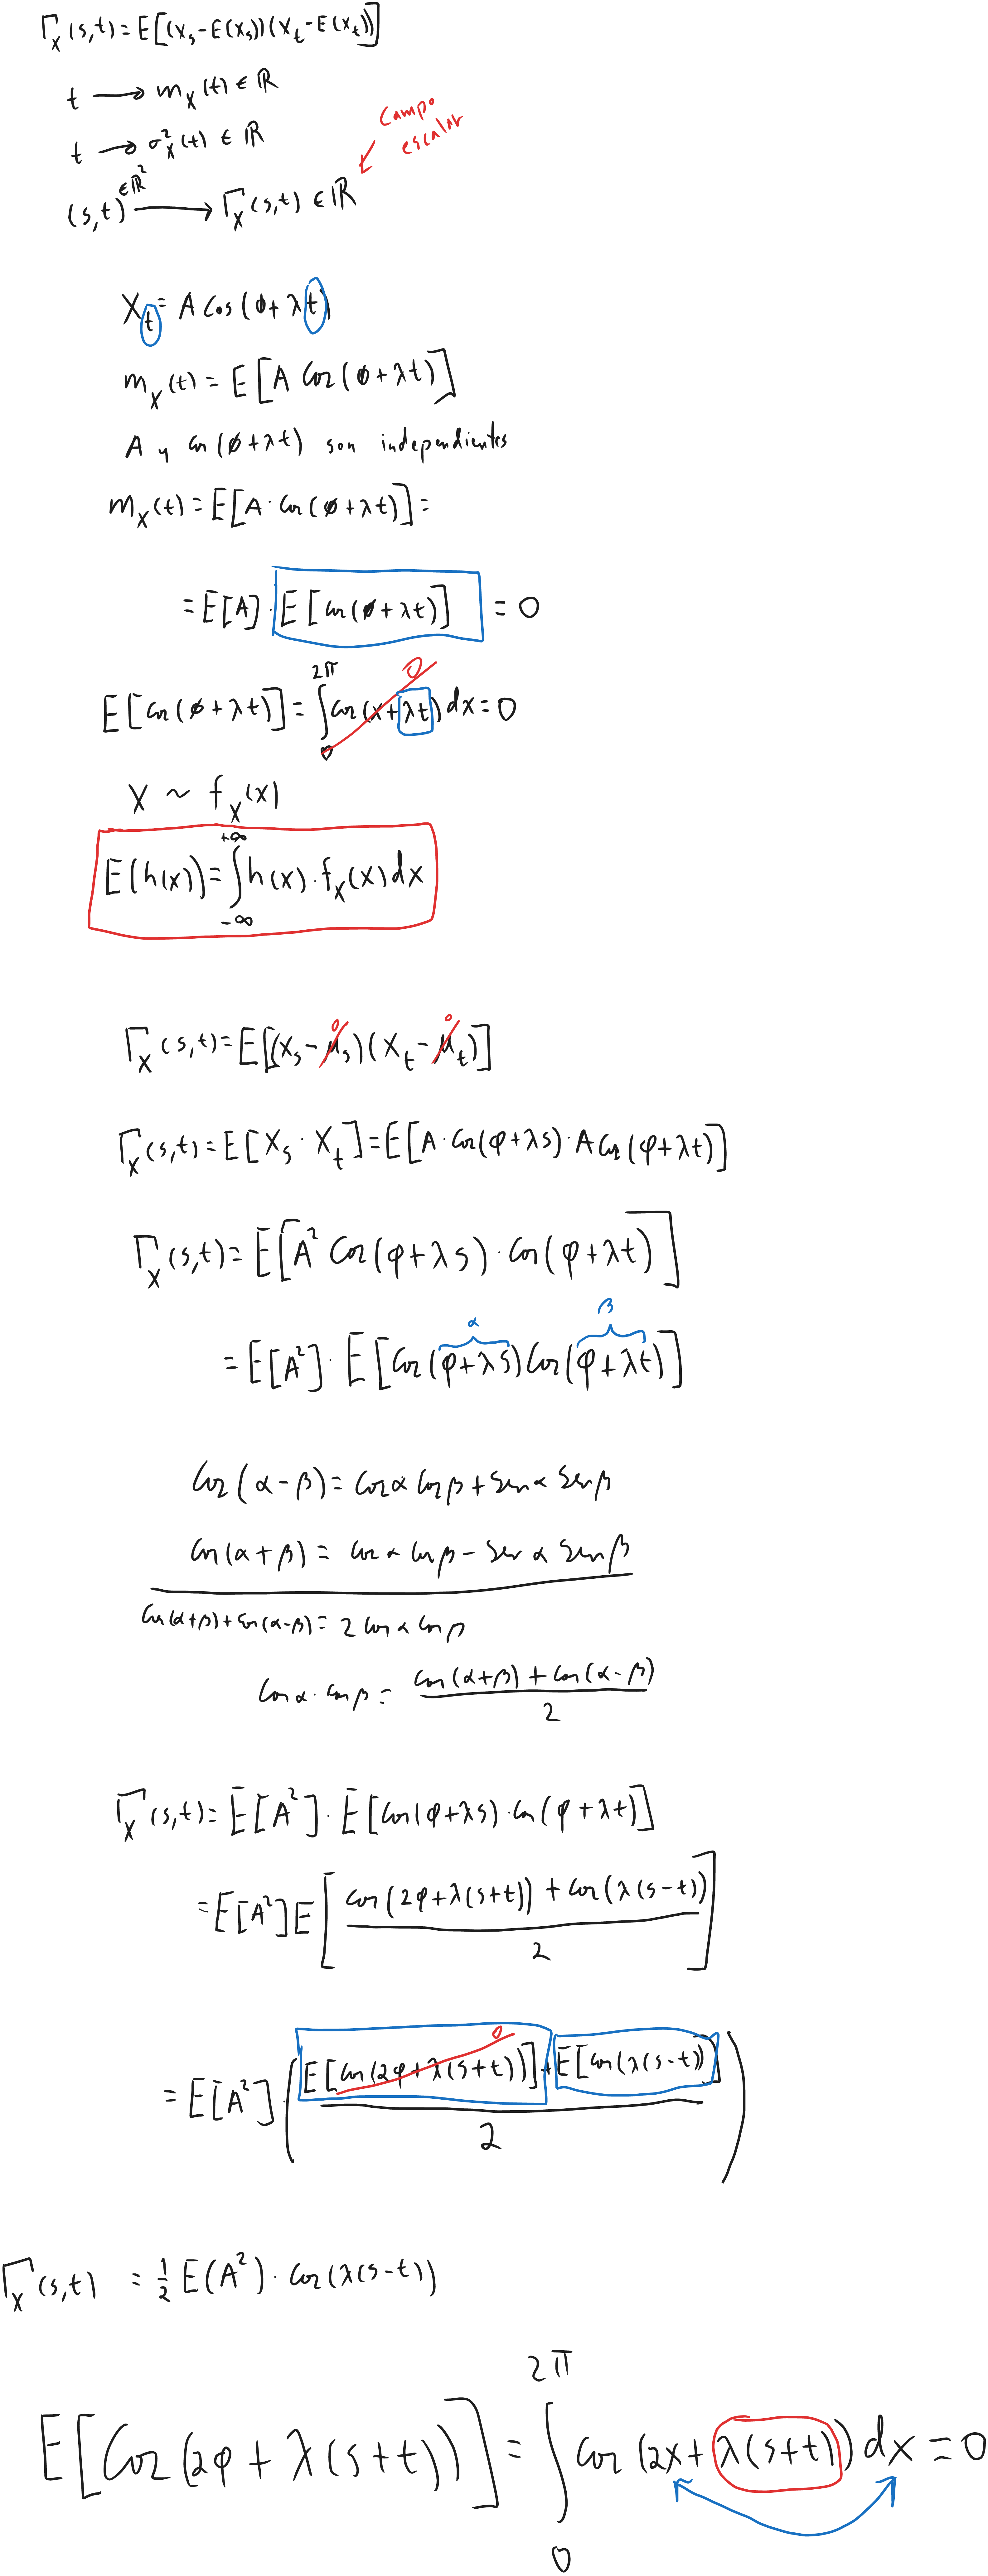 Γ_X(s,t) = E[(X_s - E(X_s))(X_t - E(X_t))]
t ⟶ m_X(t) ∈ ℝ
Campo
escalar
t ⟶ σ²_X(t) ∈ ℝ
∈ℝ²
(s,t) ⟶ Γ_X(s,t) ∈ ℝ
X_t = A Cos(ϕ + λt)
m_X(t) = E[A Cos(ϕ + λt)]
A y Cos(ϕ + λt) son independientes
m_X(t) = E[A · Cos(ϕ + λt)] =
= E[A] · E[Cos(ϕ + λt)] = 0
0
E[Cos(ϕ + λt)] = ∫_0^{2π} Cos(x + λt) dx = 0
X ~ f_X(x)
E(h(x)) = ∫_{-∞}^{+∞} h(x) · f_X(x) dx
0 0
Γ_X(s,t) = E[(X_s - μ_s)(X_t - μ_t)]
Γ_X(s,t) = E[X_s · X_t] = E[A · Cos(φ + λs) · A Cos(φ + λt)]
Γ_X(s,t) = E[A² Cos(φ + λs) · Cos(φ + λt)]
α β
= E[A²] · E[Cos(φ + λs) Cos(φ + λt)]
Cos(α - β) = Cos α Cos β + Sen α Sen β
Cos(α + β) = Cos α Cos β - Sen α Sen β
Cos(α+β) + Cos(α-β) = 2 Cos α Cos β
Cos α · Cos β = (Cos(α+β) + Cos(α-β))/2
Γ_X(s,t) = E[A²] · E[Cos(φ + λs) · Cos(φ + λt)]
= E[A²] E[(Cos(2φ + λ(s+t)) + Cos(λ(s-t)))/2]
0
= E[A²] · ((E[Cos(2φ + λ(s+t))] + E[Cos(λ(s-t))])/2)
Γ_X(s,t) = 1/2 E(A²) · Cos(λ(s-t))
E[Cos(2φ + λ(s+t))] = ∫_0^{2π} Cos(2x + λ(s+t)) dx = 0